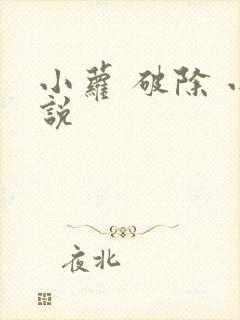 小蘿 破除
說
夜北